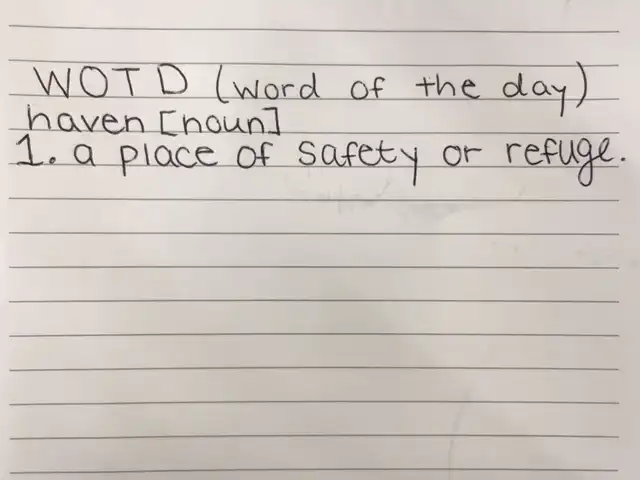 WOTD (word of the day)
haven [noun]
1. a place of safety or refuge.